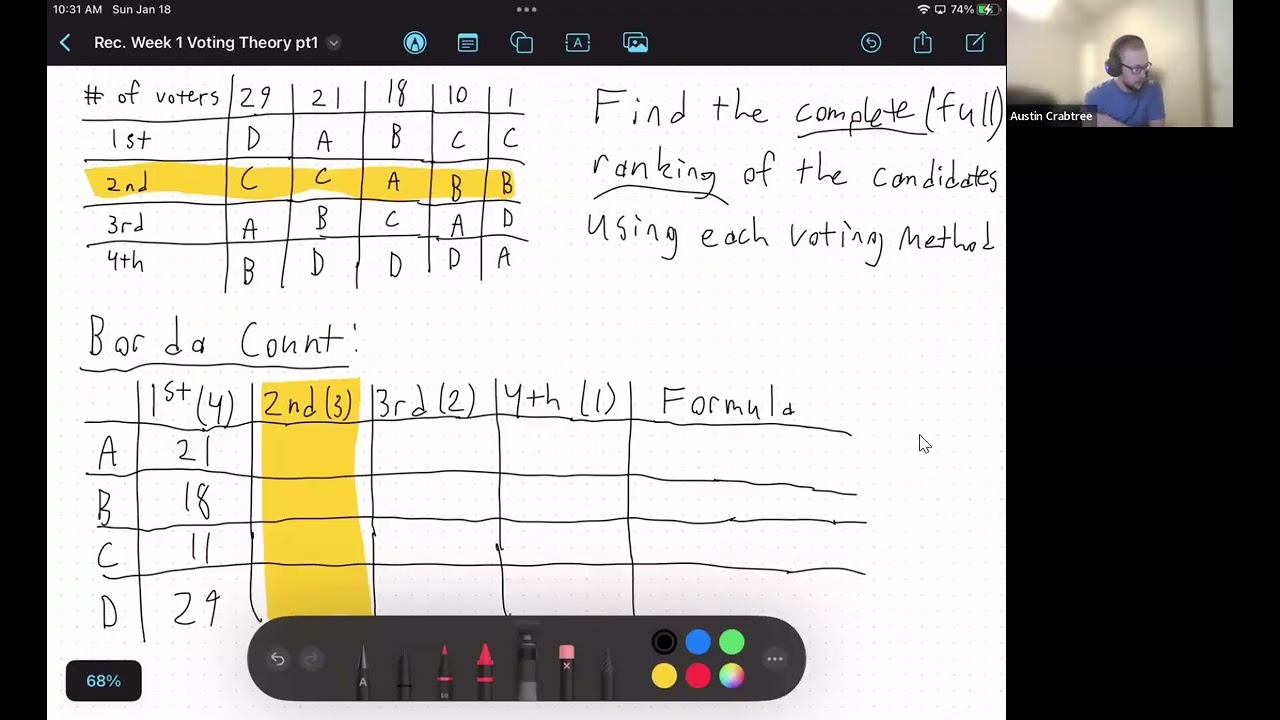 10:31 AM Sun Jan 18
74%
Rec. Week 1 Voting Theory pt1
A
Austin Crabtree
# of voters 29 21 18 10 1
1st D A B C C
2nd C C A B B
3rd A B C A D
4th B D D D A
Find the complete (full)
ranking of the candidates
using each voting method
Borda Count:
1st (4) 2nd (3) 3rd (2) 4th (1) Formula
A 21
B 18
C 11
D 29
68%
A